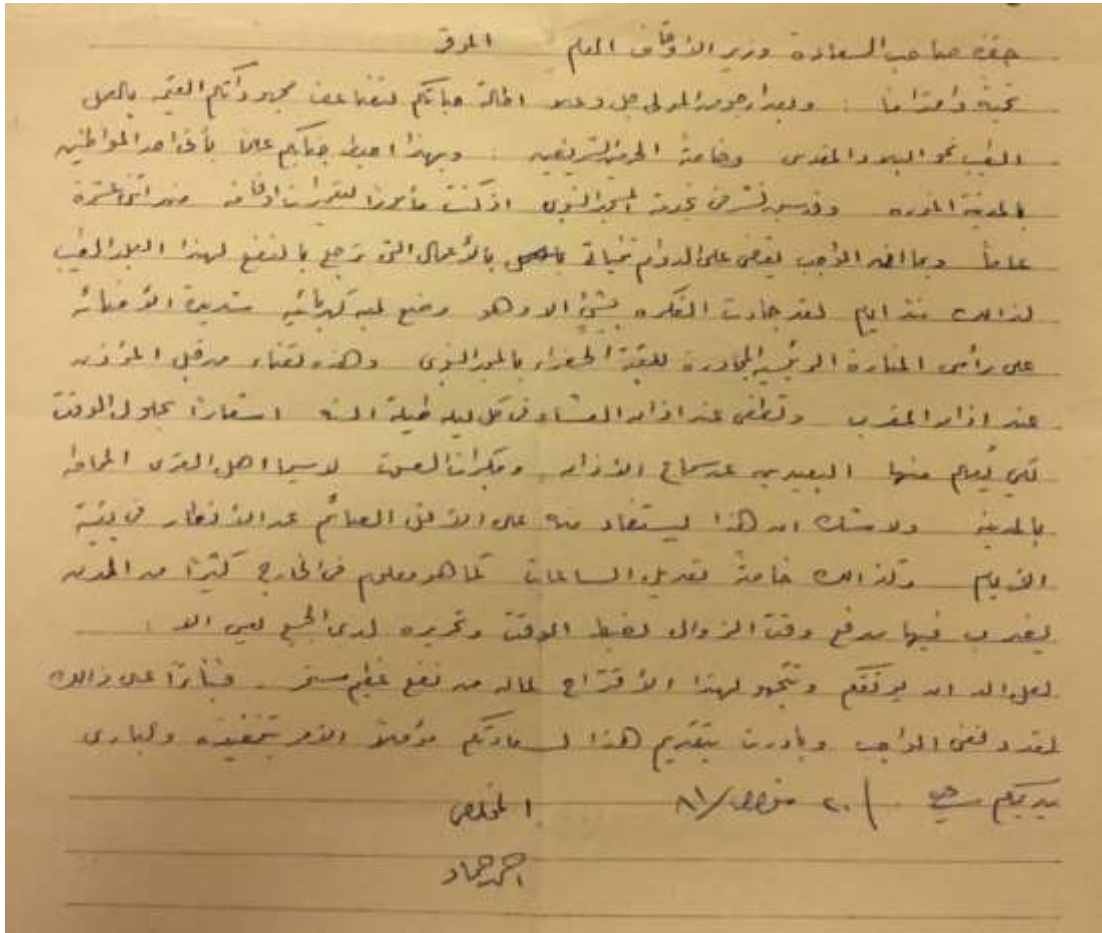 حضرة صاحب السعادة وزير الأوقاف العام الموقر
تحية واحتراما : وبعد ارجو من المولى جل وعلا اطالة حياتكم لتضاعف مجهوداتكم القيمه بالعمل
الطيب نحو البلاد المقدس وخاصة الحرمين الشريفين : وبهذا احيط جنابكم علما بأني احد المواطنين
بالمدينة المنوره وقد سبق تشرفي بخدمة المسجد النبوي اذ كنت مأمورا منذ اثنى عشرة
عاماً وبما ان الواجب يقضى على الدوام بالأعمال التى ترجع بالنفع لهذا البلد الطيب
لذالك منذ ايام لقد جادت الفكره بشئ الا وهو وضع لمبه كهربائيه شديدة الأضائه
على رأس المنارة الرئيسية المجاورة للقبة الخضراء بالمسجد النبوى وهذه تضاء من قبل المؤذن
عند اذان المغرب وتطفى عند اذان العشاء فى كل ليله طيلة السنه اشعارا بحلول الوقت
لكي يعلم منها البعيدين عن سماع الأذان ومكبرات الصوت لاسيما اهل القرى المحاطه
بالمدينه ولا شك ان هذا ليستفاد منه على الأخص الصائم عن الأفطار فى بقية
الأيام وكذالك خاصة تعديل الساعات كما هو معلوم فى الخارج كثيرا من المدن
يضرب فيها مدفع وقت الزوال لضبط الوقت وتحريره لدى الجميع
لعل الله ان يوفقكم وتتجهو لهذا الأقتراح لما له من نفع عظيم مستمر . على ذالك
لقد دفعنى الواجب وبادرت بتقديم هذا لسعادتكم مؤملا الأمر بتنفيذه والبارى
يديكم ٢٠ /٨١ المخلص
احمد حماد